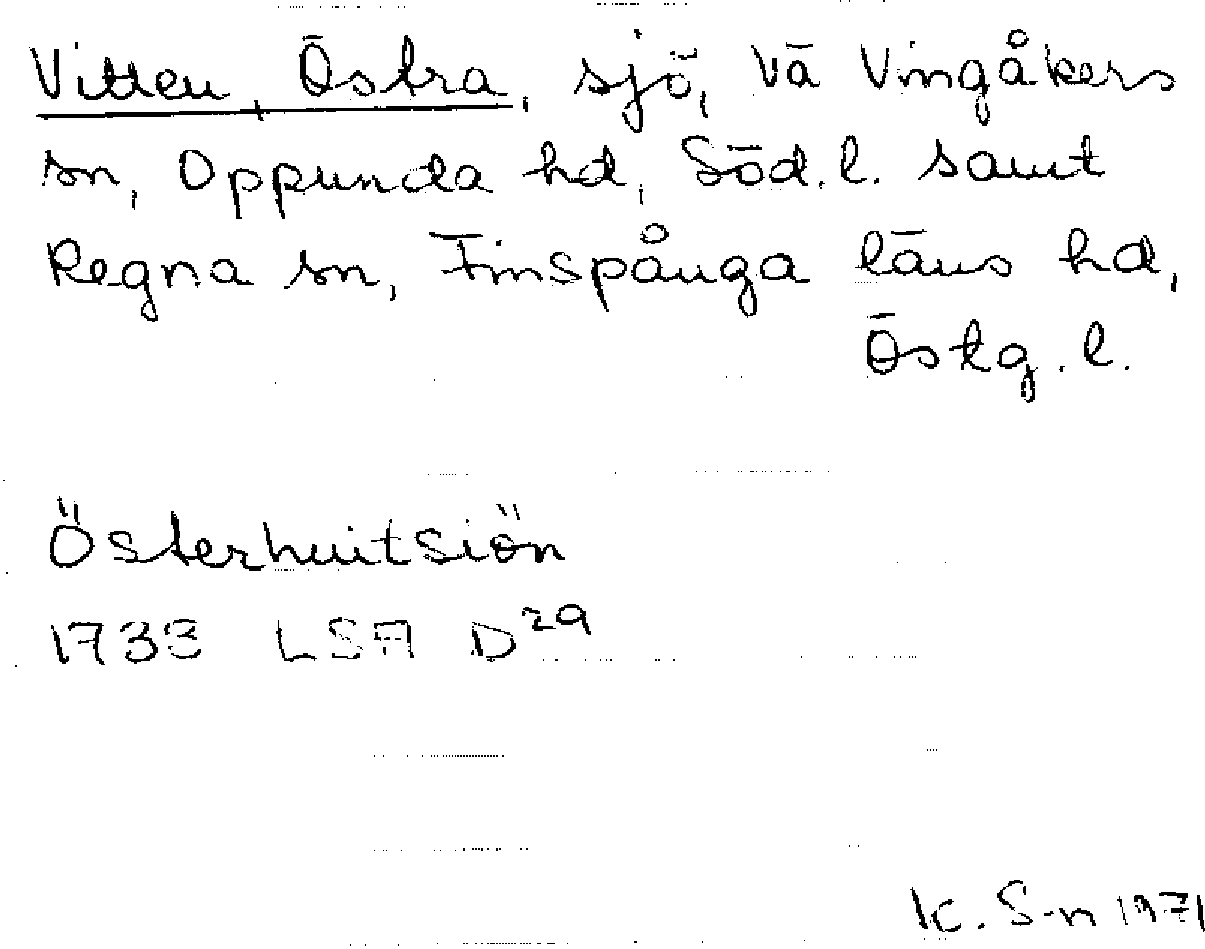 Vitten, Östra, sjö, Vä Vingåkers
sn, Oppunda hd, Söd. l. samt
Regna sn, Finspånga läns hd,
Östg. l.
Österhuitsiön
1733 LSA D29
K. S-n 1971